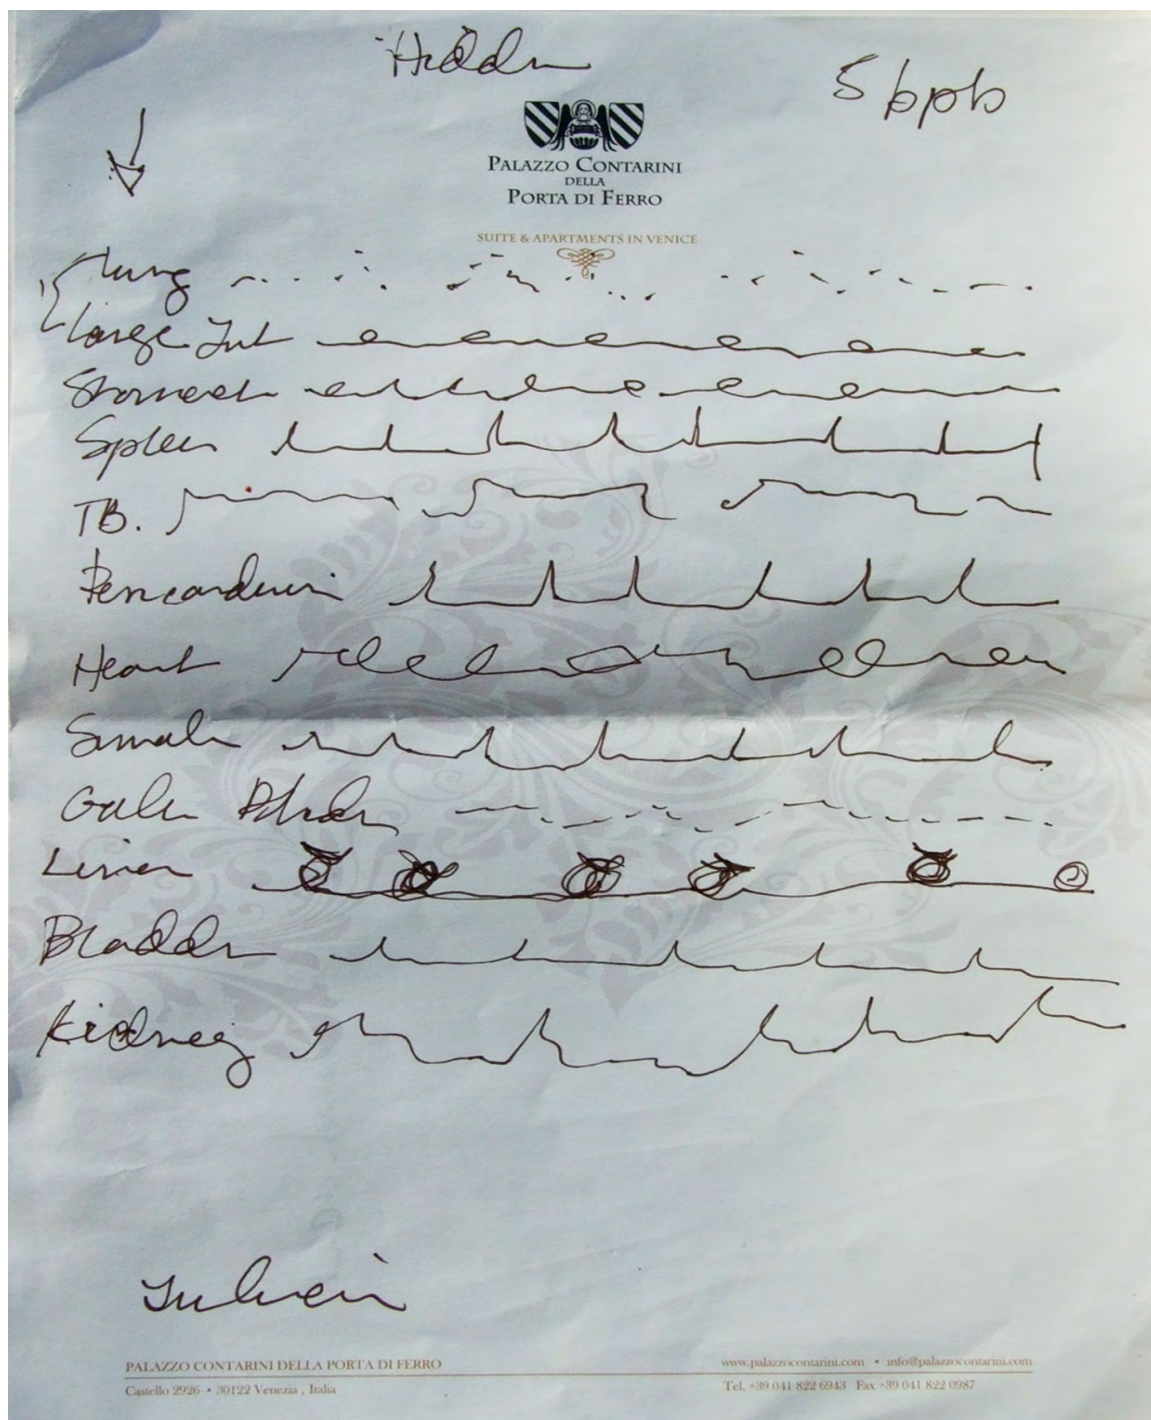 Hidden
5 bpb
PALAZZO CONTARINI
DELLA
PORTA DI FERRO
SUITE & APARTMENTS IN VENICE
Lung
Large Int
Stomach
Spleen
TB.
Pericardium
Heart
Small
Gall Bladder
Liver
Bladder
Kidney
PALAZZO CONTARINI DELLA PORTA DI FERRO
Castello 2926 • 30122 Venezia , Italia
www.palazzocontarini.com • info@palazzocontarini.com
Tel. +39 041 822 6943 Fax +39 041 822 0987